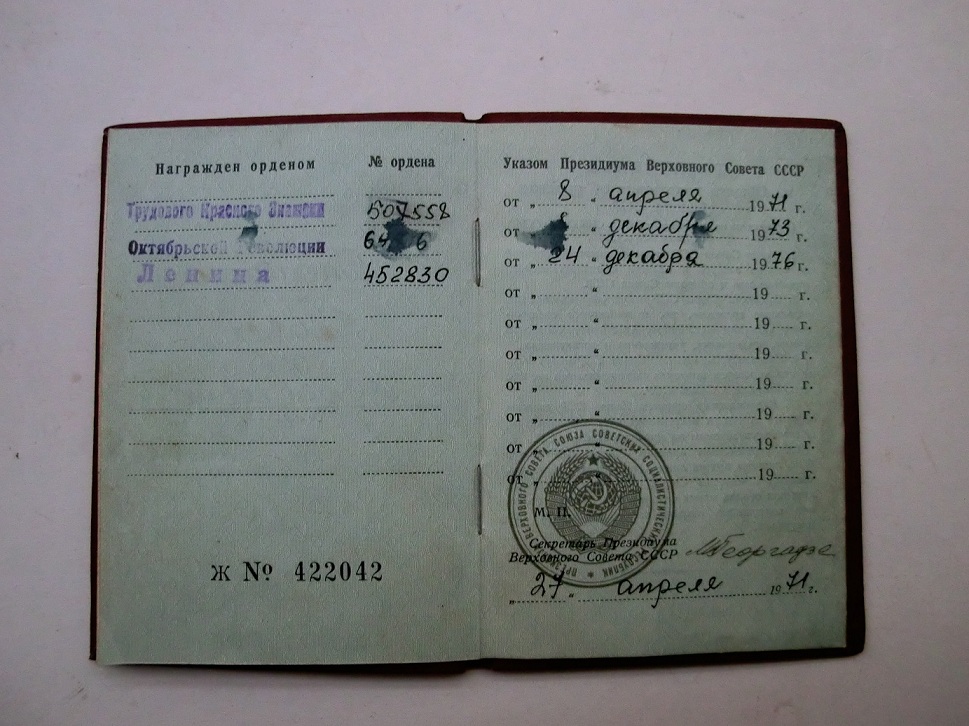 Награжден орденом
№ ордена
Трудового Красного Знамени
507558
Октябрьской Революции
Ленина
452830
Ж № 422042
Указом Президиума Верховного Совета СССР
от „ 8 “ апреля 1971 г.
от „ “ декабря 1973 г.
от „ 24 “ декабря 1976 г.
от „ “ 19 г.
от „ “ 19 г.
от „ “ 19 г.
от „ “ 19 г.
от „ “ 19 г.
от „ “ 19 г.
от „ “ 19 г.
ВЕРХОВНОГО СОВЕТА СОЮЗА СОВЕТСКИХ СОЦИАЛИСТИЧЕСКИХ
М. П.
Секретарь Президиума
Верховного Совета СССР
МГеоргадзе
„ 27 “ апреля 1971 г.